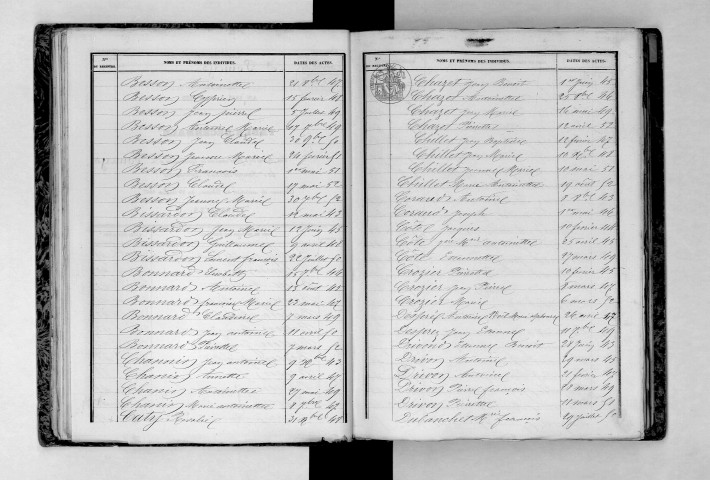 Nos DU REGISTRE. NOMS ET PRÉNOMS DES INDIVIDUS. DATES DES ACTES.
Besson Antoinette 21 8bre 47
Besson Cyprien 15 février 48
Besson Jean pierre 5 Juillet 49
Besson Antoine Marie 19 9bre 49
Besson Jean Claude 30 9bre 50
Besson Jeanne Marie 26 février 51
Besson Francois 1er mai 51
Besson Claude 17 mai 52
Besson Jeanne Marie 30 7bre 52
Bissardon Claude 12 mai 43
Bissardon Jean Marie 12 Juin 45
Bissardon Guillaume 9 avril 48
Bissardon Laurent françois 22 Juillet 50
Bonnard 46
Bonnard Antoine 15 août 43
Bonnard francoise Marie 23 mai 47
Bonnard Claudine 7 mars 49
Bonnard Jean antoine 11 avril 52
Bonnard Pierrette 7 mars 52
Channis Jean antoine 9 Xbre 43
Chanis Annette 9 avril 47
Chanis Antoinette 27 mai 49
Chanis Marie antoinette 8 7bre 42
Caty 31 Xbre 48
Nos DU REGISTRE. NOMS ET PRÉNOMS DES INDIVIDUS. DATES DES ACTES.
Chazet Jean Benoit 1er Juin 45
Chazet Antoinette 25 8bre 46
Chazet Jean Marie 16 mai 49
Chazet Pierrette 12 avril 52
Chillet Jean Baptiste 12 février 47
Chillet Jean Marie 10 Xbre 48
Chillet Jeanne Marie 10 mai 51
Chillet Marie Antoinette 19 août 52
Corand Antoine 8 Xbre 43
Corand Joseph 1er mai 46
Côte Jacques 10 février 44
Côte Jne Mie antoinette 25 avril 45
Côte 27 mars 49
Crozier Pierrette 10 février 45
Crozier Jean Pierre 9 mars 47
Crozier Marie 6 mars 52
24 avril 47
Jean 11 7bre 49
Drivon Etienne Benoit 28 Juin 43
Drivon Antoine 29 mars 45
Drivon Antoine 21 février 47
Drivon Pierre francois 10 mars 49
Drivon Pierrette 11 mars 51
Dulanchet 29 Juillet 50